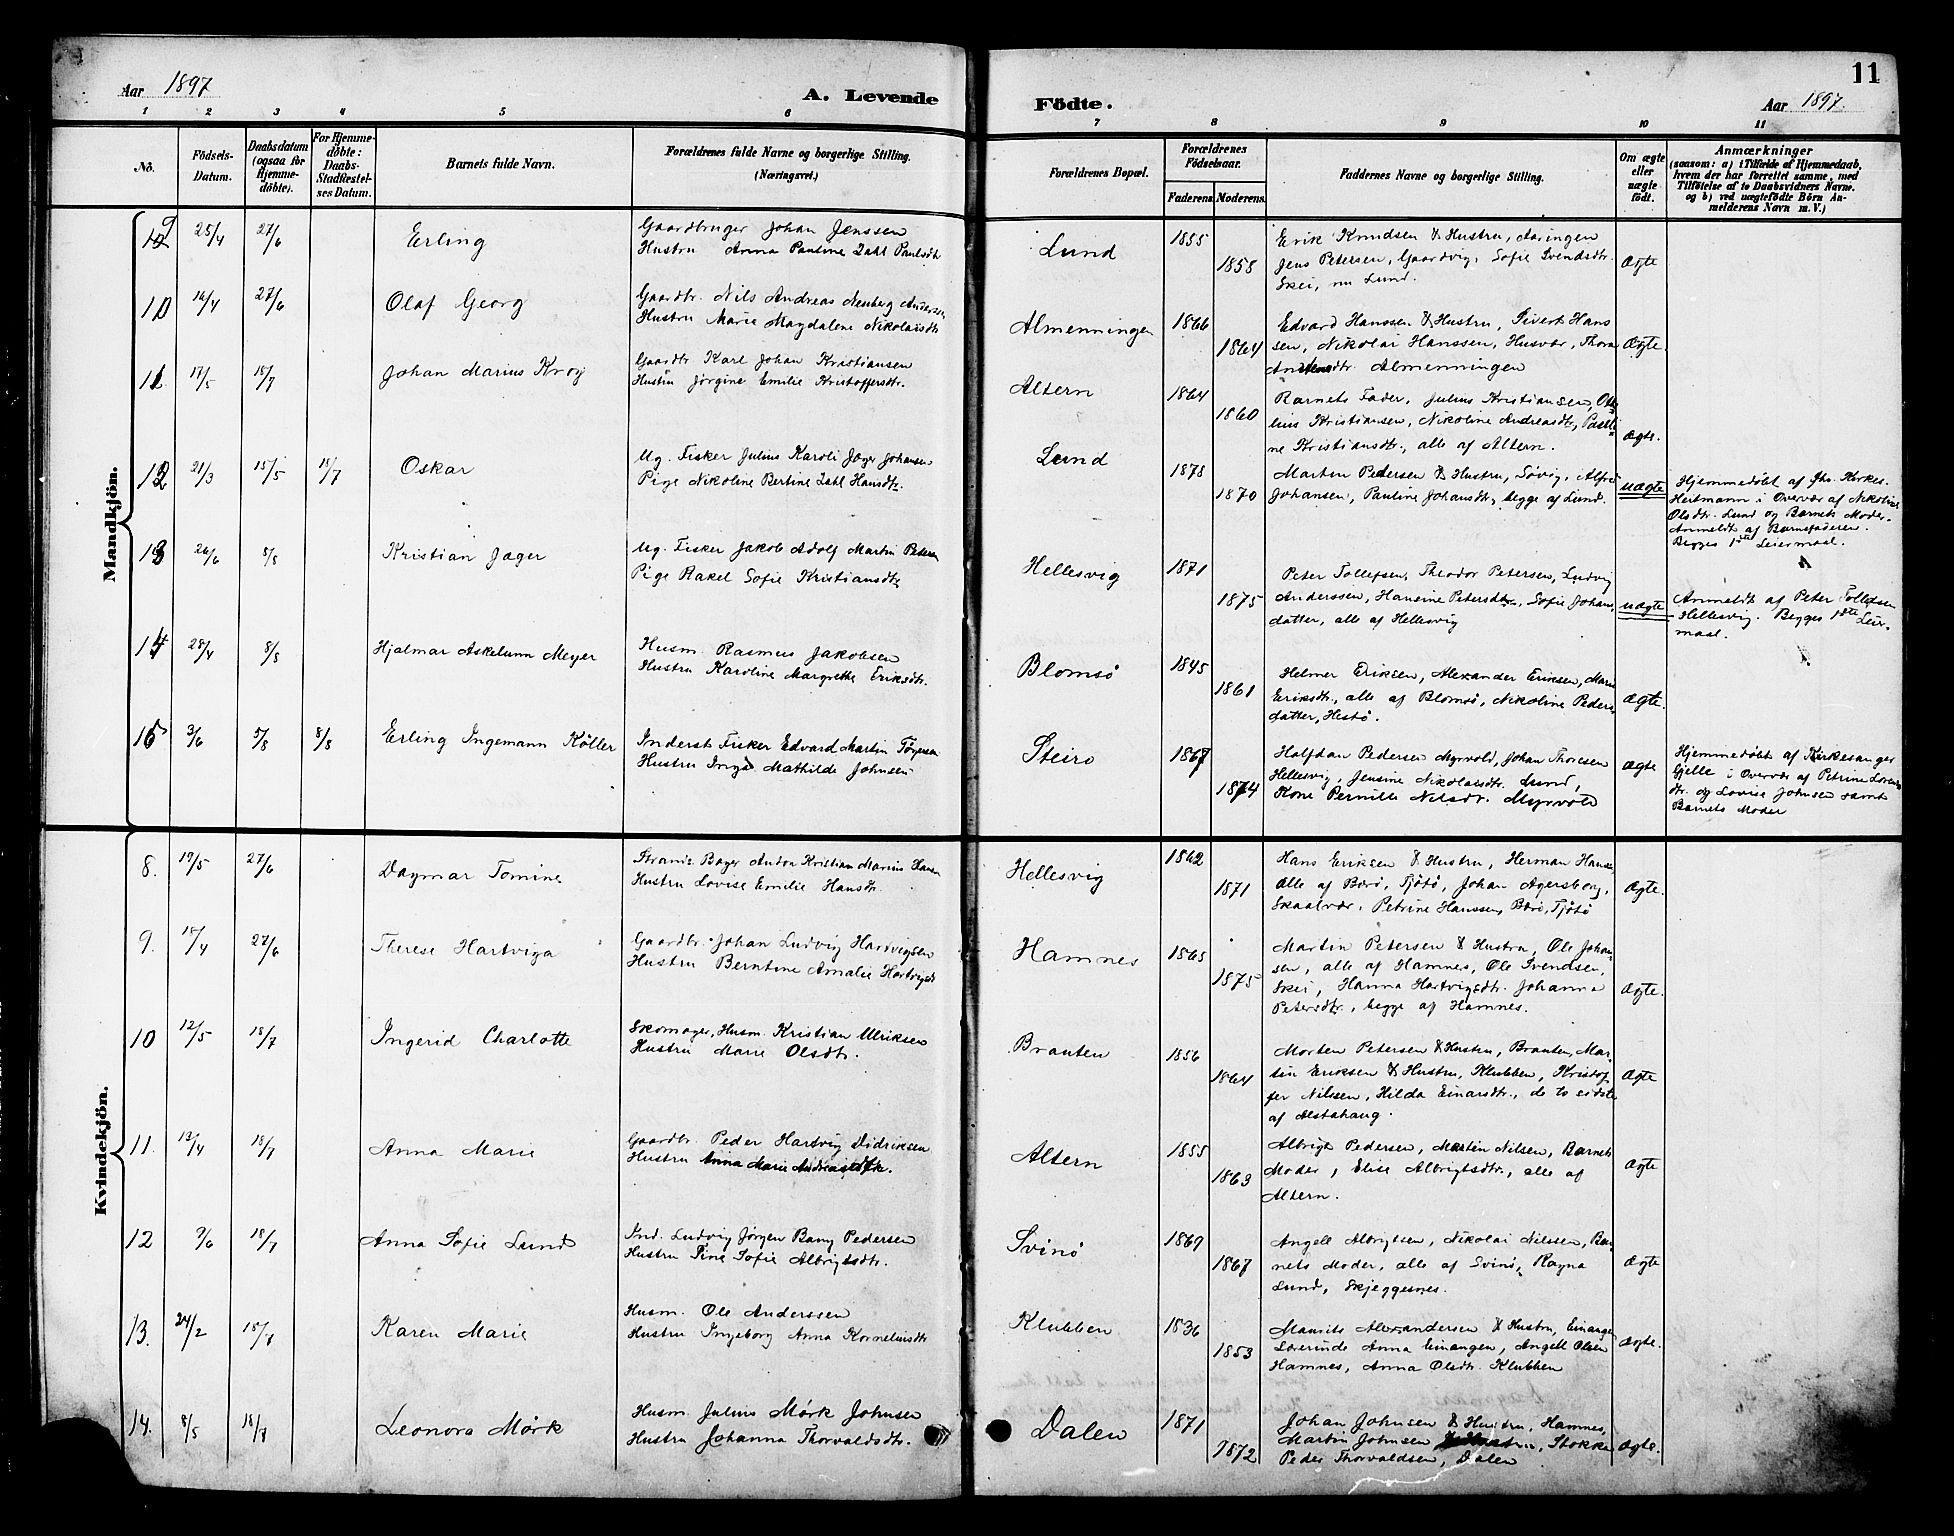 Aar 1897
A. Levende
1 2 3 4 5 6
No. Födsels-Datum. Daabsdatum (ogsaa för Hjemme-döbte). For Hjemme-döbte: Daabs-Stadfæstel-ses Datum. Barnets fulde Navn. Forældrenes fulde Navne og borgerlige Stilling. (Næringsvei.)
Mandkjön.
25/4 27/6 Erling Gaardbruger Johan Jenssen
Hustru Anna Pauline Zahl Paulsdt.
10 14/4 27/6 Olaf Georg Gaardbr. Nils Andreas Nenberg Anderssen
Hustru Marie Magdalene Nikolaisdt.
11. 17/5 18/7 Johan Marius Krog Gaardbr. Karl Johan Kristiansen
Hustru Jörgine Emilie Kristoffersdtr.
12 21/3 15/5 18/7 Oskar Ug. Fisker Julius Karoli Jæger Johansen
Pige Nikoline Bertine Zahl Hansdtr.
13 26/6 8/8 Kristian Jæger Ug. Fisker Jakob Adolf Martin Petersen
Pige Rakel Sofie Kristiansdtr.
14 28/4 8/8 Hjalmar Askelunn Meyer Husm. Rasmus Jakobsen
Hustru Karoline Margrethe Eriksdtr.
15 3/6 5/8 8/8 Erling Ingemann Köller Inderst Fisker Edvard Martin Törgersen
Hustru Inga Mathilde Johnsen
Kvindekjön.
8. 19/5 27/6 Dagmar Tomine Strands. Bager Anton Kristian Marius Hansen
Hustru Lovise Emilie Hansdtr.
9. 18/4 27/6 Therese Hartviga Gaardbr. Johan Ludvig Hartvigsen
Hustru Berntine Amalie Hartvigsdt.
10 12/5 18/7 Ingerid Charlotte Skomager, Husm. Kristian Ulriksen
Hustru Marie Olsdtr.
11. 13/4 18/7 Anna Marie Gaardbr. Peder Hartvig Didriksen
Hustru Anna Marie Andreasdtr.
12 9/6 18/7 Anna Sofie Lund Ind. Ludvig Jörgen Bang Pedersen
Hustru Tine Sofie Albrigtsdtr.
13. 24/2 18/7 Karen Marie Husm. Ole Anderssen
Hustru Ingeborg Anna Korneliusdtr
14. 8/5 18/7 Leonora Mörk Husm. Julius Mörk Johnsen
Hustru Johanna Thorvaldsdtr.
11
Födte.
Aar 1897.
7 8 9 10 11
Forældrenes Bopæl. Forældrenes Födselsaar. Faderens Moderens. Faddernes Navne og borgerlige Stilling. Om ægte eller uægte födt. Anmærkninger
(saasom: a) i Tilfælde af Hjemmedaab,
hvem der har forrettet samme, med
Tilföielse af to Daabsvidners Navne.
og b) ved uægtefödte Börn An-
melderens Navn m. V.)
Lund 1855 1858 Erik Knudsen & Hustru, Aaringen
Jens Petersen, Gaardvig, Sofie Svendsdtr. Ægte
Skei, nu Lund.
Almenningen 1866 1864 Edvard Hanssen & Hustru, Sivert Hans
sen, Nikolai Hanssen, Husvær, Thora Ægte
Andersdtr. Almenningen
Altern 1864 1860 Barnets Fader, Julius Kristiansen, Otte
lius Kristiansen, Nikoline Andreasdtr, Pauli-
ne Kristiansdtr, alle af Altern. Ægte.
Lund 1878 1870 Martin Pedersen & Hustru, Sövig, Alfred
Johansen, Pauline Johansdtr, begge af Lund. uægte
Hjemmedöbt af Ghs. Kirkes.
Heitmann i Overvær af Nikoline
Olsdtr. Lund og Barnets Moder.
Anmeldt af Barnefaderen.
Begges 1ste Leiermaal.
Hellesvig 1871 1875 Peter Tollefsen, Theodor Petersen, Ludvig
Anderssen, Hansine Petersdtr, Sofie Johans,
datter, alle af Hellesvig uægte
Anmeldt af Peter Tollefsen
Hellesvig. Begges 1ste Leier-
maal.
Blomsö 1845 1861 Helmer Eriksen, Alexander Eriksen, Marie
Eriksdtr., alle af Blomsö, Nikoline Peders,
datter, Hestö. Ægte.
Steiro 1867 1874 Halfdan Pedersen Myrvold, Johan Thoresen
Hellesvig, Jensine Nikolaisdtr. Lund,
Kone Pernille Nelsdtr. Myrvold Ægte
Hjemmedöbt af Kirkesanger
Gjelle i Overvær af Petrine Lorens
dtr. og Lovise Johnsen samt
Barnets Moder
Hellesvig 1862 1871 Hans Eriksen & Hustru, Herman Hansen
alle af Bærö, Tjötö, Johan Agersborg,
Skaalvær, Petrine Hanssen, Bærö, Tjötö Ægte.
Hamnes 1865 1875 Martin Petersen & Hustru, Ole Johan-
sen, alle af Hamnes, Ole Svendsen,
Skei, Hanna Hartvigsdtr. Johanna
Petersdtr., begge af Hamnes. Ægte.
Brauten 1856 1864 Morten Petersen & Hustru, Brauten, Mar-
tin Eriksen & Hustru, Klubben, Kristof-
fer Nilssen, Hilda Einarsdtr., de to sidste
af Alstahaug. Ægte
Altern 1855 1863 Albrigt Pedersen, Martin Nilsen, Barnets
Moder, Elise Albrigtsdtr., alle af
Altern. Ægte
Svinö 1869 1867 Angell Albrigtsen, Nikolai Nilssen, Bar-
nets Moder, alle af Svinö, Ragna
Lund, Skjeggesnes. Ægte
Klubben 1836 1853 Maurits Alexandersen & Hustru, Einangen
Lærerinde Anna Einangen, Angell Olsen
Hamnes, Anna Olsdtr. Klubben Ægte.
Dalen 1871 1872 Johan Johnsen & Hustru, Hamnes,
Martin Johnsen Stokka
Peder Thorvaldsen, Dalen Ægte.